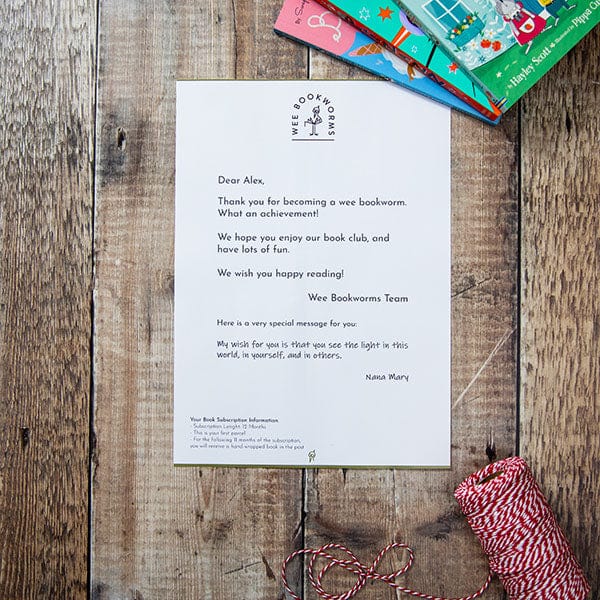 By Su
Hayley Scott
Illustrated by Pippa Cu
WEE BOOKWORMS
Dear Alex,
Thank you for becoming a wee bookworm.
What an achievement!
We hope you enjoy our book club, and
have lots of fun.
We wish you happy reading!
Wee Bookworms Team
Here is a very special message for you:
My wish for you is that you see the light in this
world, in yourself, and in others.
Nana Mary
Your Book Subscription Information
- Subscription Lenght: 12 Months
- This is your first parcel
- For the following 11 months of the subscription,
you will receive a hand-wrapped book in the post